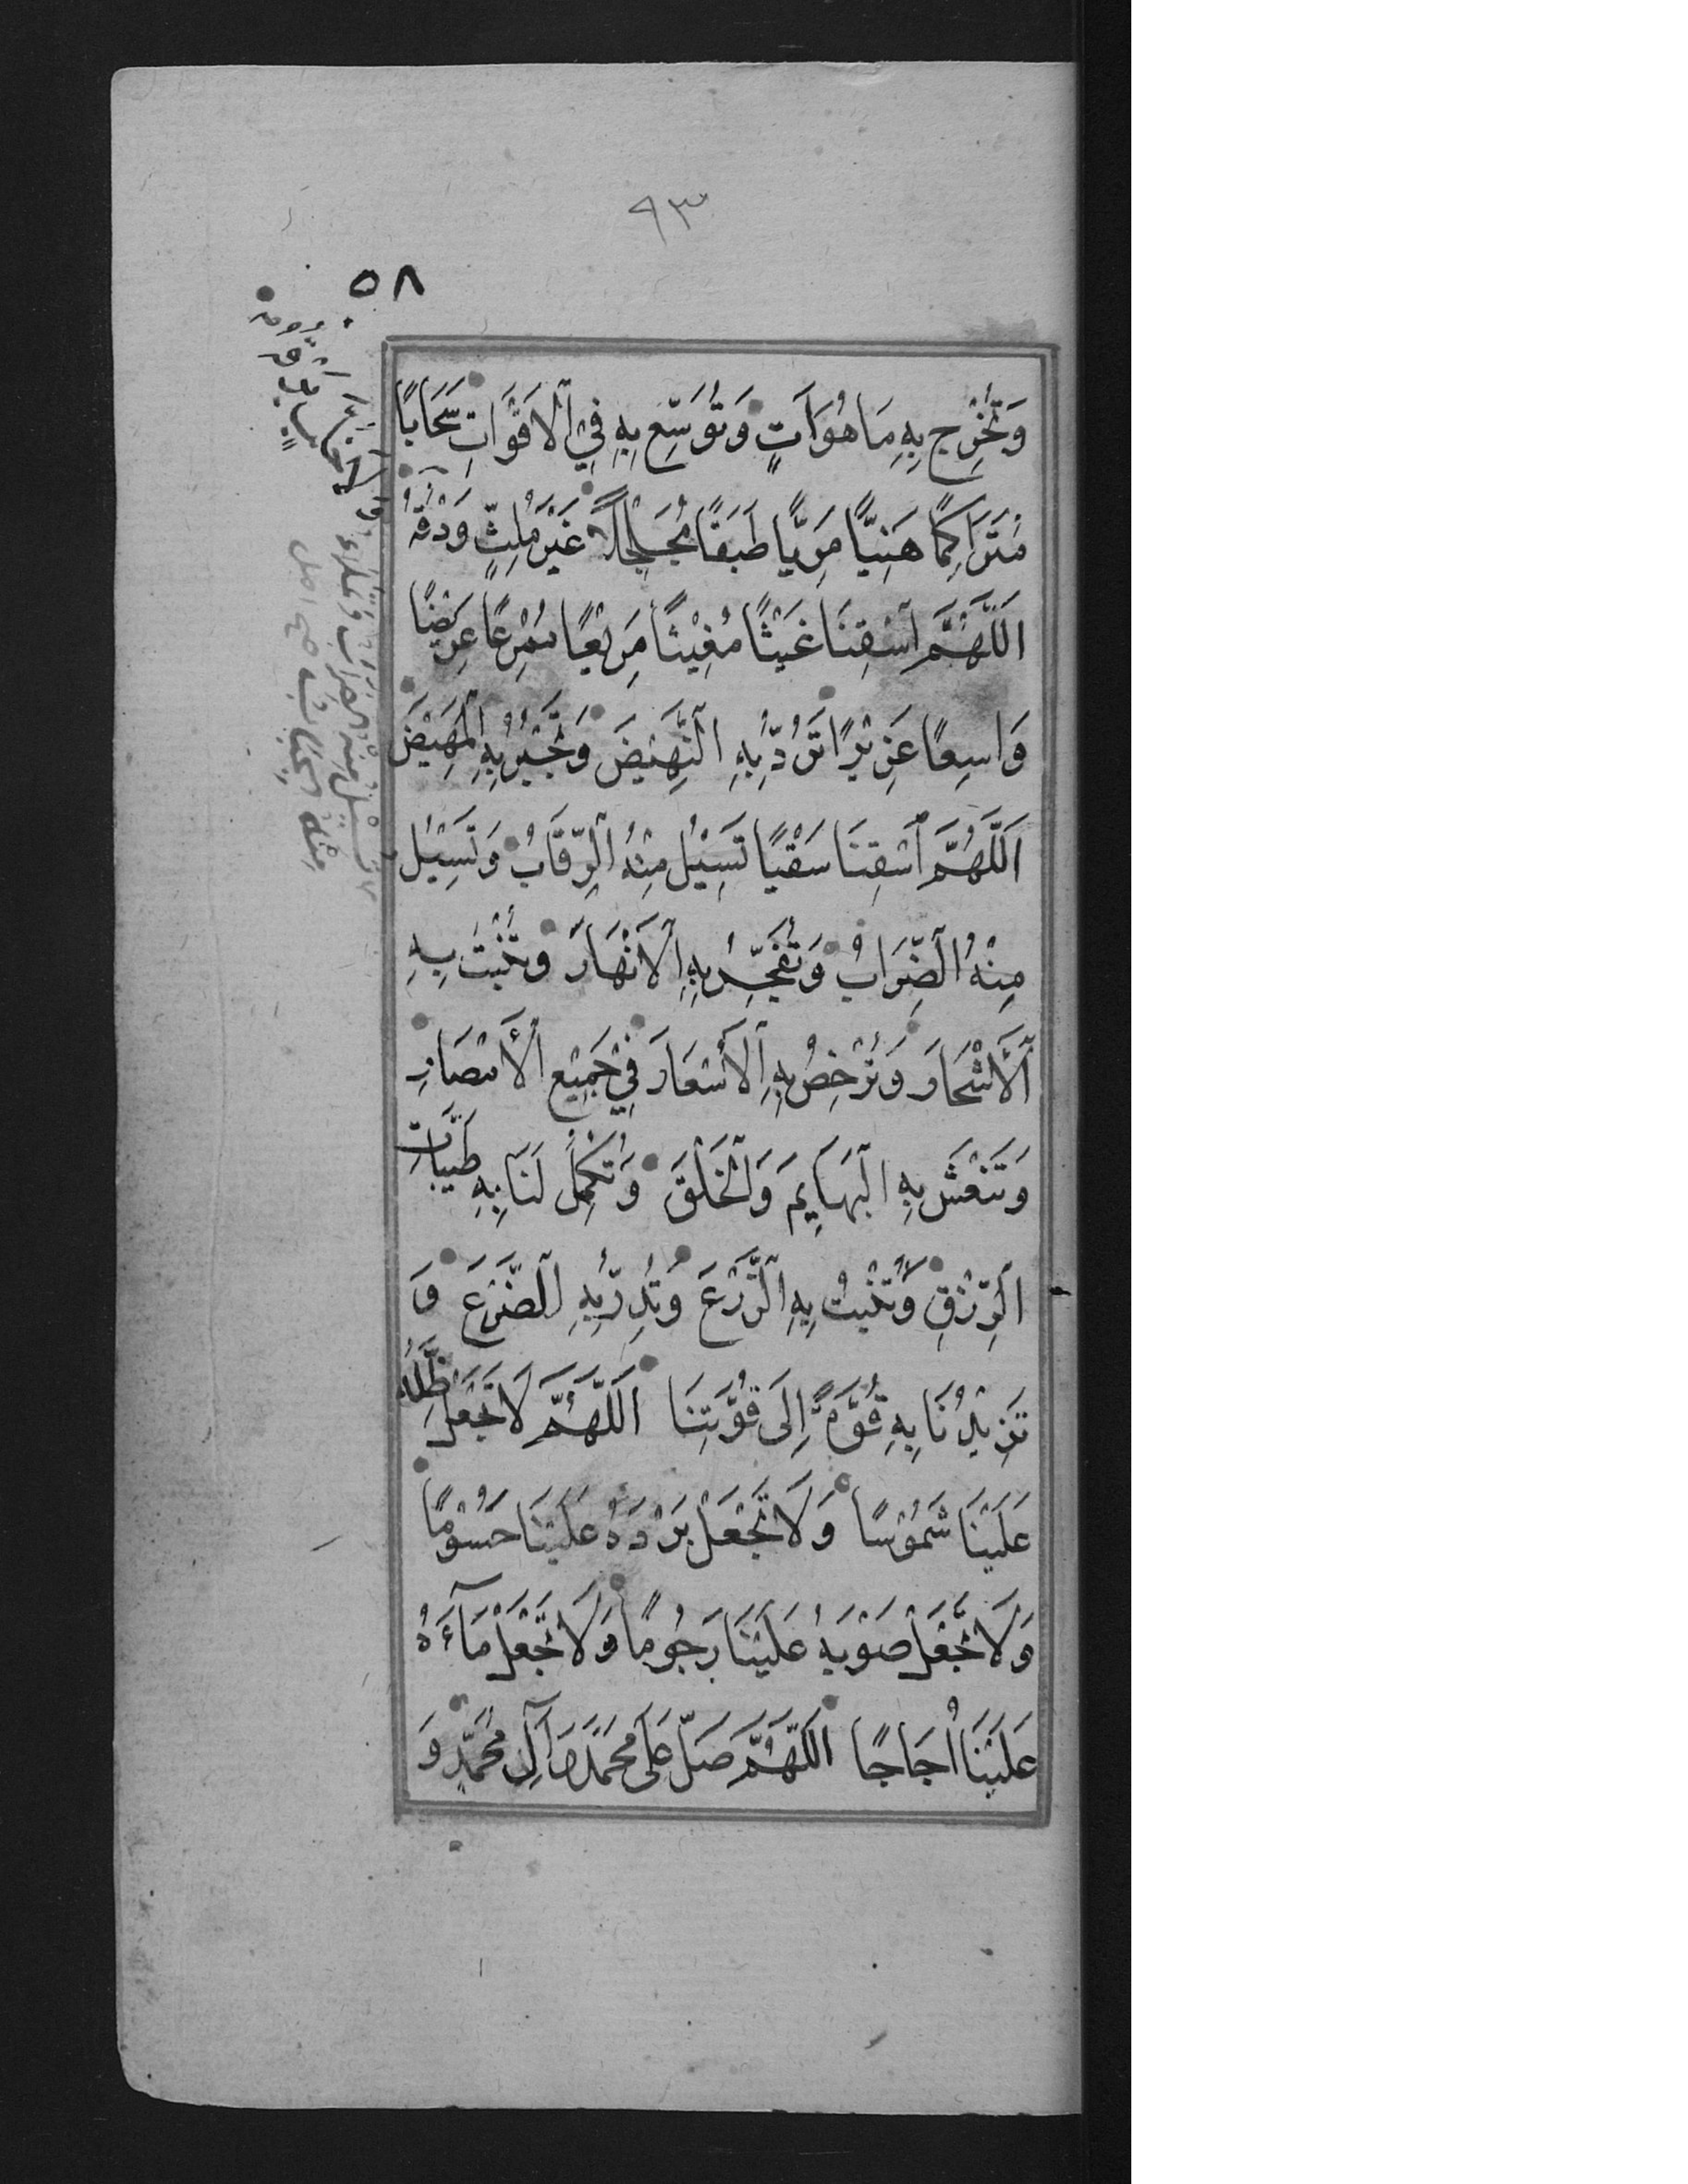 ٩٣
٥٨
وَتُخْرِجُ بِهِ مَا هُوَ آتٍ وَتُوَسِّعُ بِهِ فِي الْأَقْوَاتِ سَحَابًا
مُتَرَاكِمًا هَنِيًّا مَرِيًّا طَبَقًا مُجَلْجِلًا غَيْرَ مُلِثٍّ وَدْقُهُ
اللَّهُمَّ اسْقِنَا غَيْثًا مُغِيثًا مَرِيعًا مُمْرِعًا عَرِيضًا
وَاسِعًا غَزِيرًا تَرُدُّ بِهِ النَّهِيضَ وَتَجْبُرُ بِهِ الْمَهِيضَ
اَللَّهُمَّ اسْقِنَا سَقْيًا تَسِيْلُ مِنْهُ الرِّقَابُ وَتَسِيْلُ
مِنْهُ الضِّرَابُ وَتُفَجِّرُ بِهِ الْأَنْهَارَ وَتُنْبِتُ بِهِ
الْأَشْجَارَ وَتُرْخِصُ بِهِ الْأَسْعَارَ فِي جَمِيْعِ الْأَمْصَارِ
وَتَنْعَشُ بِهِ الْبَهَايِمَ وَالْخَلْقَ وَتُكْمِلُ لَنَا بِهِ طَيِّبَاتِ
الرِّزْقِ وَتُنْبِتُ بِهِ الزَّرْعَ وَتُدِرُّ بِهِ الضَّرْعَ وَ
تَزِيْدُنَا بِهِ قُوَّةً إِلَى قُوَّتِنَا اللَّهُمَّ لَا تَجْعَلْ ظِلَّهُ
عَلَيْنَا سَمُوْمًا وَلَا تَجْعَلْ بَرْدَهُ عَلَيْنَا حُسُوْمًا
وَلَا تَجْعَلْ صَوْبَهُ عَلَيْنَا رُجُومًا وَلَا تَجْعَلْ مَآءَهُ
عَلَيْنَا أُجَاجًا اللَّهُمَّ صَلِّ عَلَى مُحَمَّدٍ وَآلِ مُحَمَّدٍ وَ